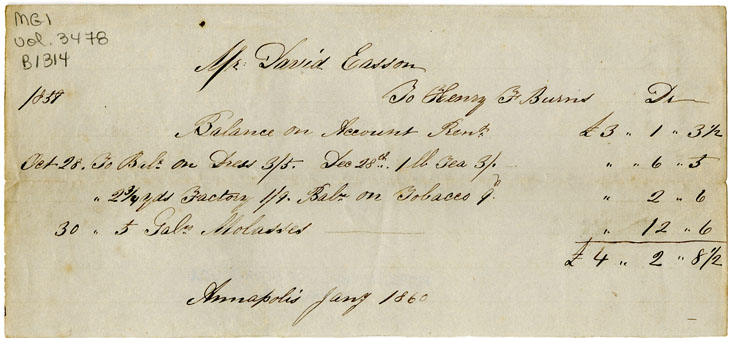 MG1
vol. 3478
B1314
Mr. David Easson
To Henry F Burns Dr
1858
Balance on Account Rend. £3 " 1 " 3½
Oct 28. To Balc on Dress 3/5. Dec 28th. 1 lb Tea 3/. " " 6 " 5
" 2¾ yds Factory 1/9. Balc on Tobacco 9d. " 2 " 6
30 " 5 Gals Molasses " 12 " 6
£ 4 " 2 " 8½
Annapolis Jany 1860